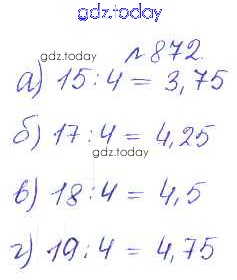 gdz.today
gdz.today
№872
а) 15:4 = 3,75
б) 17:4 = 4,25
gdz.today
в) 18:4 = 4,5
г) 19:4 = 4,75
gdz.today